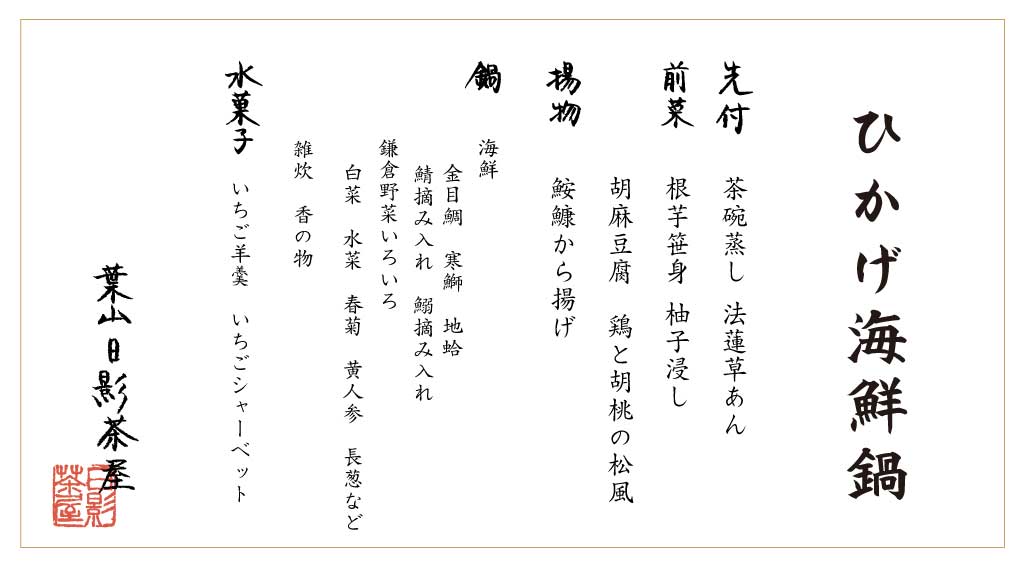 ひかげ海鮮鍋
先付 茶碗蒸し 法蓮草あん
前菜 根芋笹身 柚子浸し
胡麻豆腐 鶏と胡桃の松風
揚物 鮟鱇から揚げ
鍋 海鮮
金目鯛 寒鰤 地蛤
鯖摘み入れ 鰯摘み入れ
鎌倉野菜いろいろ
白菜 水菜 春菊 黄人参 長葱など
雑炊 香の物
水菓子 いちご羊羹 いちごシャーベット
葉山日影茶屋
日影
茶屋